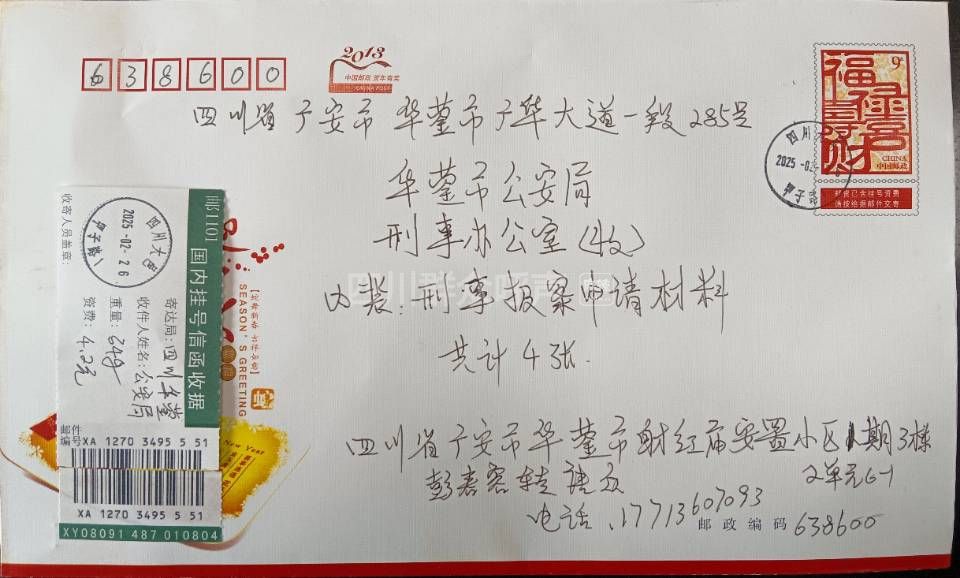 638600
2013
中国邮政 贺年有奖
CHINA POST
福禄寿喜财
9
CHINA
中国邮政
邮资已含挂号资费
请按给据邮件交寄
四川大
2025-02
甲子路
四川省广安市华蓥市广华大道一段285号
华蓥市公安局
刑事办公室(收)
内装:刑事报案申请材料
共计4张.
四川群众呼声
四川省广安市华蓥市射红庙安置小区1期3楼
2单元6-1
转
电话.17713607093
邮政编码 638600
邮1101
国内挂号信函收据
寄达局:四川华蓥
收件人姓名:公安局
重量:34g
资费:4.2元
收寄人员盖章:
四川大邑
2025-02-26
甲子路1
邮件
编号XA 1270 3495 5 51
XA 1270 3495 5 51
XY08091 487 010804
SEASON'S GREETING
New Year